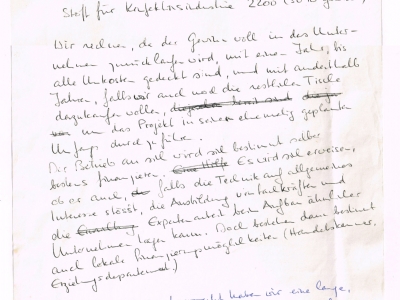 Stoff für Konfektionsindustrie 2200 (
Wir rechnen, da der Gewinn voll in das Unter-
nehmen zurückfliessen wird, mit einem Jahr, bis
alle Unkosten gedeckt sind, und mit anderthalb
Jahren, falls wir auch noch die restlichen Tische
dazukaufen wollen,
um das Projekt in seinem ehemalig geplanten
Umfang durchzuführen.
Der Betrieb an sich wird sich bestimmt selber
bestens finanzieren. Eine Hilfe Es wird sich erweisen,
ob es auch, falls die Technik auf allgemeines
Interesse stösst, die Ausbildung von Fachkräften und
die Expertenarbeit beim Aufbau ähnlicher
Unternehmen tragen kann. Doch bestehen dann bestimmt
auch lokale Finanzierungsmöglichkeiten (Handelskammer,
Erziehungsdepartement.)
haben wir eine lange,